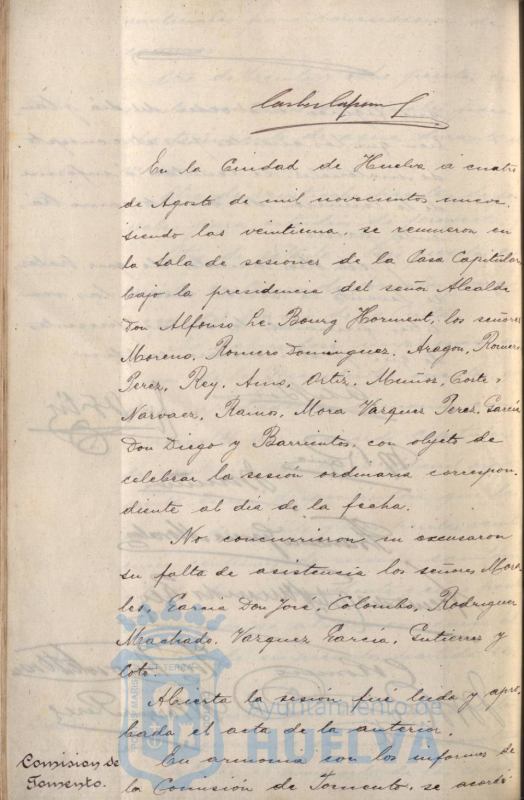 En la Ciudad de Huelva á cuatro
de Agosto de mil novecientos nueve,
siendo las veintiuna, se reunieron en
la Sala de sesiones de la Casa Capitular
bajo la presidencia del señor Alcalde
Don Alfonso Le Bourg Horment, los señores
Moreno, Romero Dominguez, Aragon, Romero
Perez, Rey, Amo, Ortiz, Muñoz, Corte,
Narvaez, Ramos, Mora Vazquez Perez, Garcia
Don Diego y Barrientos, con objeto de
celebrar la sesión ordinaria correspon
diente al dia de la fecha.
No concurrieron ni excusaron
su falta de asistencia los señores Mora
les, Garcia Don José, Colombo, Rodriguez
Machado, Vazquez Garcia, Gutierrez y
Coto.
Abierta la sesión fué leida y apro
bada el acta de la anterior.
Comision de
Fomento.
En armonia con los informes de
la Comisión de Fomento, se acordó
Ayuntamiento de
HUELVA